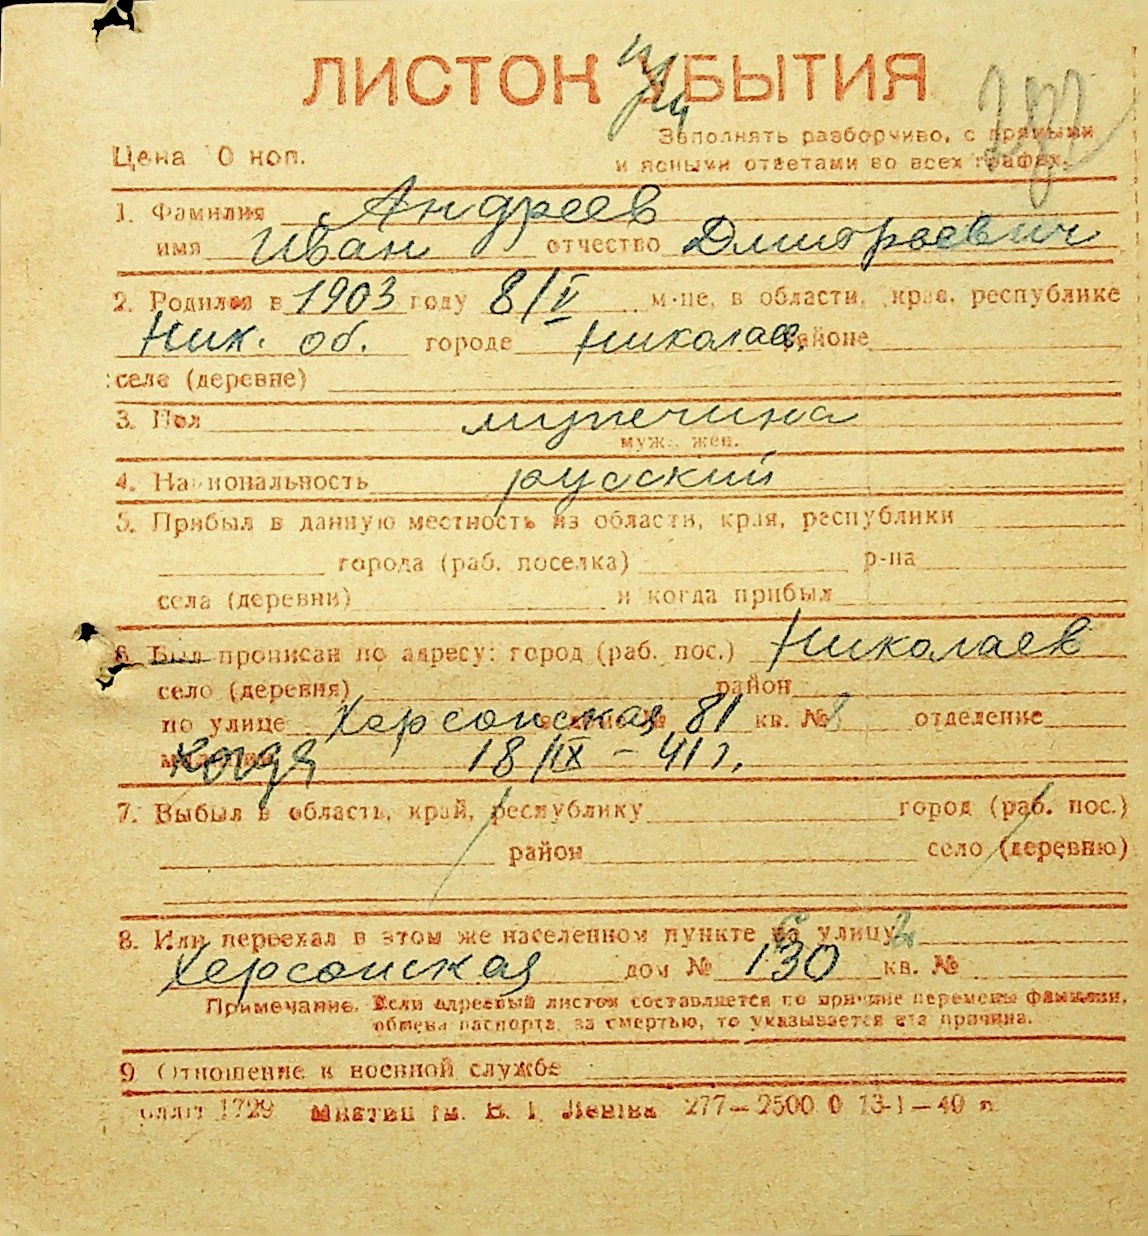 ЛИСТОК УБЫТИЯ
Заполнять разборчиво, с прямыми
Цена 10 коп. и ясными ответами во всех графах.
1. Фамилия Андреев
имя Иван отчество Дмитриевич
2. Родился в 1903 году 8/V м-це, в области, края, республике
Ник. об. городе Николаев, районе
селе (деревне)
3. Пол мужчина
муж., жен.
4. Национальность русский
5. Прибыл в данную местность из области, края, республики
города (раб. поселка) р-на
села (деревни) и когда прибыл
6. Был прописан по адресу: город (раб. пос.) Николаев
село (деревня) район
по улице Херсонская 81 кв. № 8 отделение
когда 18/IX - 41 г.
7. Выбыл в область, край, республику город (раб. пос.)
район село (деревню)
8. Или переехал в этом же населенном пункте на улицу
Херсонская дом № 130 кв. №
Примечание. Если адресный листок составляется по причине перемены фамилии,
обмена паспорта, за смертью, то указывается эта причина.
9. Отношение к военной службе
1729 им. В. І. Леніна 277—2500 0 13-1—40 п.